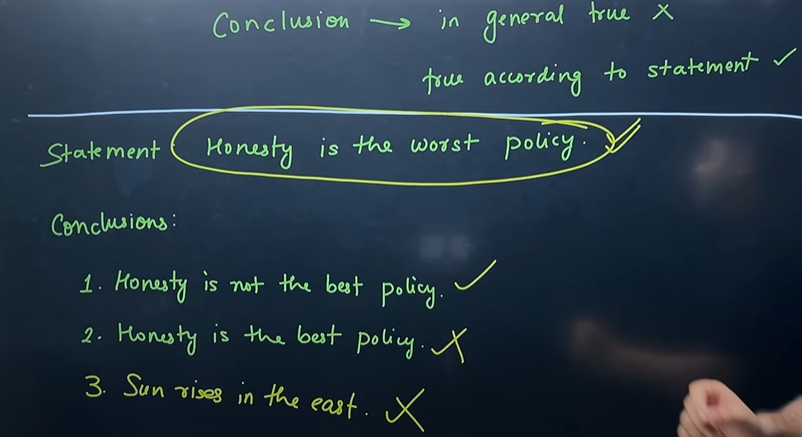 Conclusion → in general true ✗
true according to statement ✓
Statement Honesty is the worst policy. ✓
Conclusions:
1. Honesty is not the best policy. ✓
2. Honesty is the best policy. ✗
3. Sun rises in the east. ✗